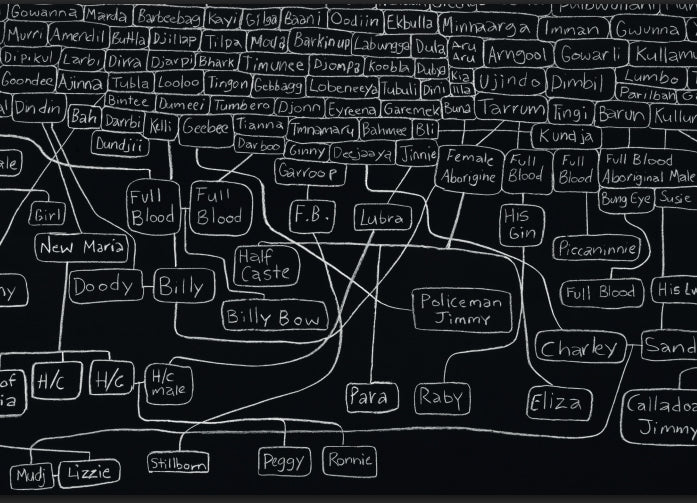 Gowanna Marda Barbeebag Kayi Gilga Baani Oodiin Ekbulla Minhaarga Imman Gwunna
Murri Amendil Butha Djillap Tilpa Moda Barkinup Labungga Dula Aru Aru Arngool Gowarli Kullam
Dipikul Larbi Dirra Djarpi Bhark Timunee Djompa Koobla Dubya Kia Illa Ujindo Dimbil Lumbo
Goondee Ajinna Tubla Looloo Tingon Gebbagg Lobeneeya Tubuli Dini Parilbah
Dindiri Bah Bintee Dumeei Tumbero Djonn Eyreena Garemek Buna Tarrum Tingi Barun Kullur
Darrbi Kelli Geebee Tianna Tmnamaru Bahmee Bli Kundja
Dundjii Darboo Ginny Deejaaya Jinnie
Garroop
Female
Aborigine
Full
Blood
Full
Blood
Full Blood
Aboriginal Male
Bung Eye Susie
Girl
Full
Blood
Full
Blood
F.B.
Lubra
His
Gin
New Maria
Half
Caste
Piccaninnie
Doody Billy
Billy Bow
Policeman
Jimmy
Full Blood
Charley
H/C H/C
H/C
male
Para
Raby
Eliza
Calladoa
Jimmy
Mudj Lizzie
Stillborn
Peggy
Ronnie